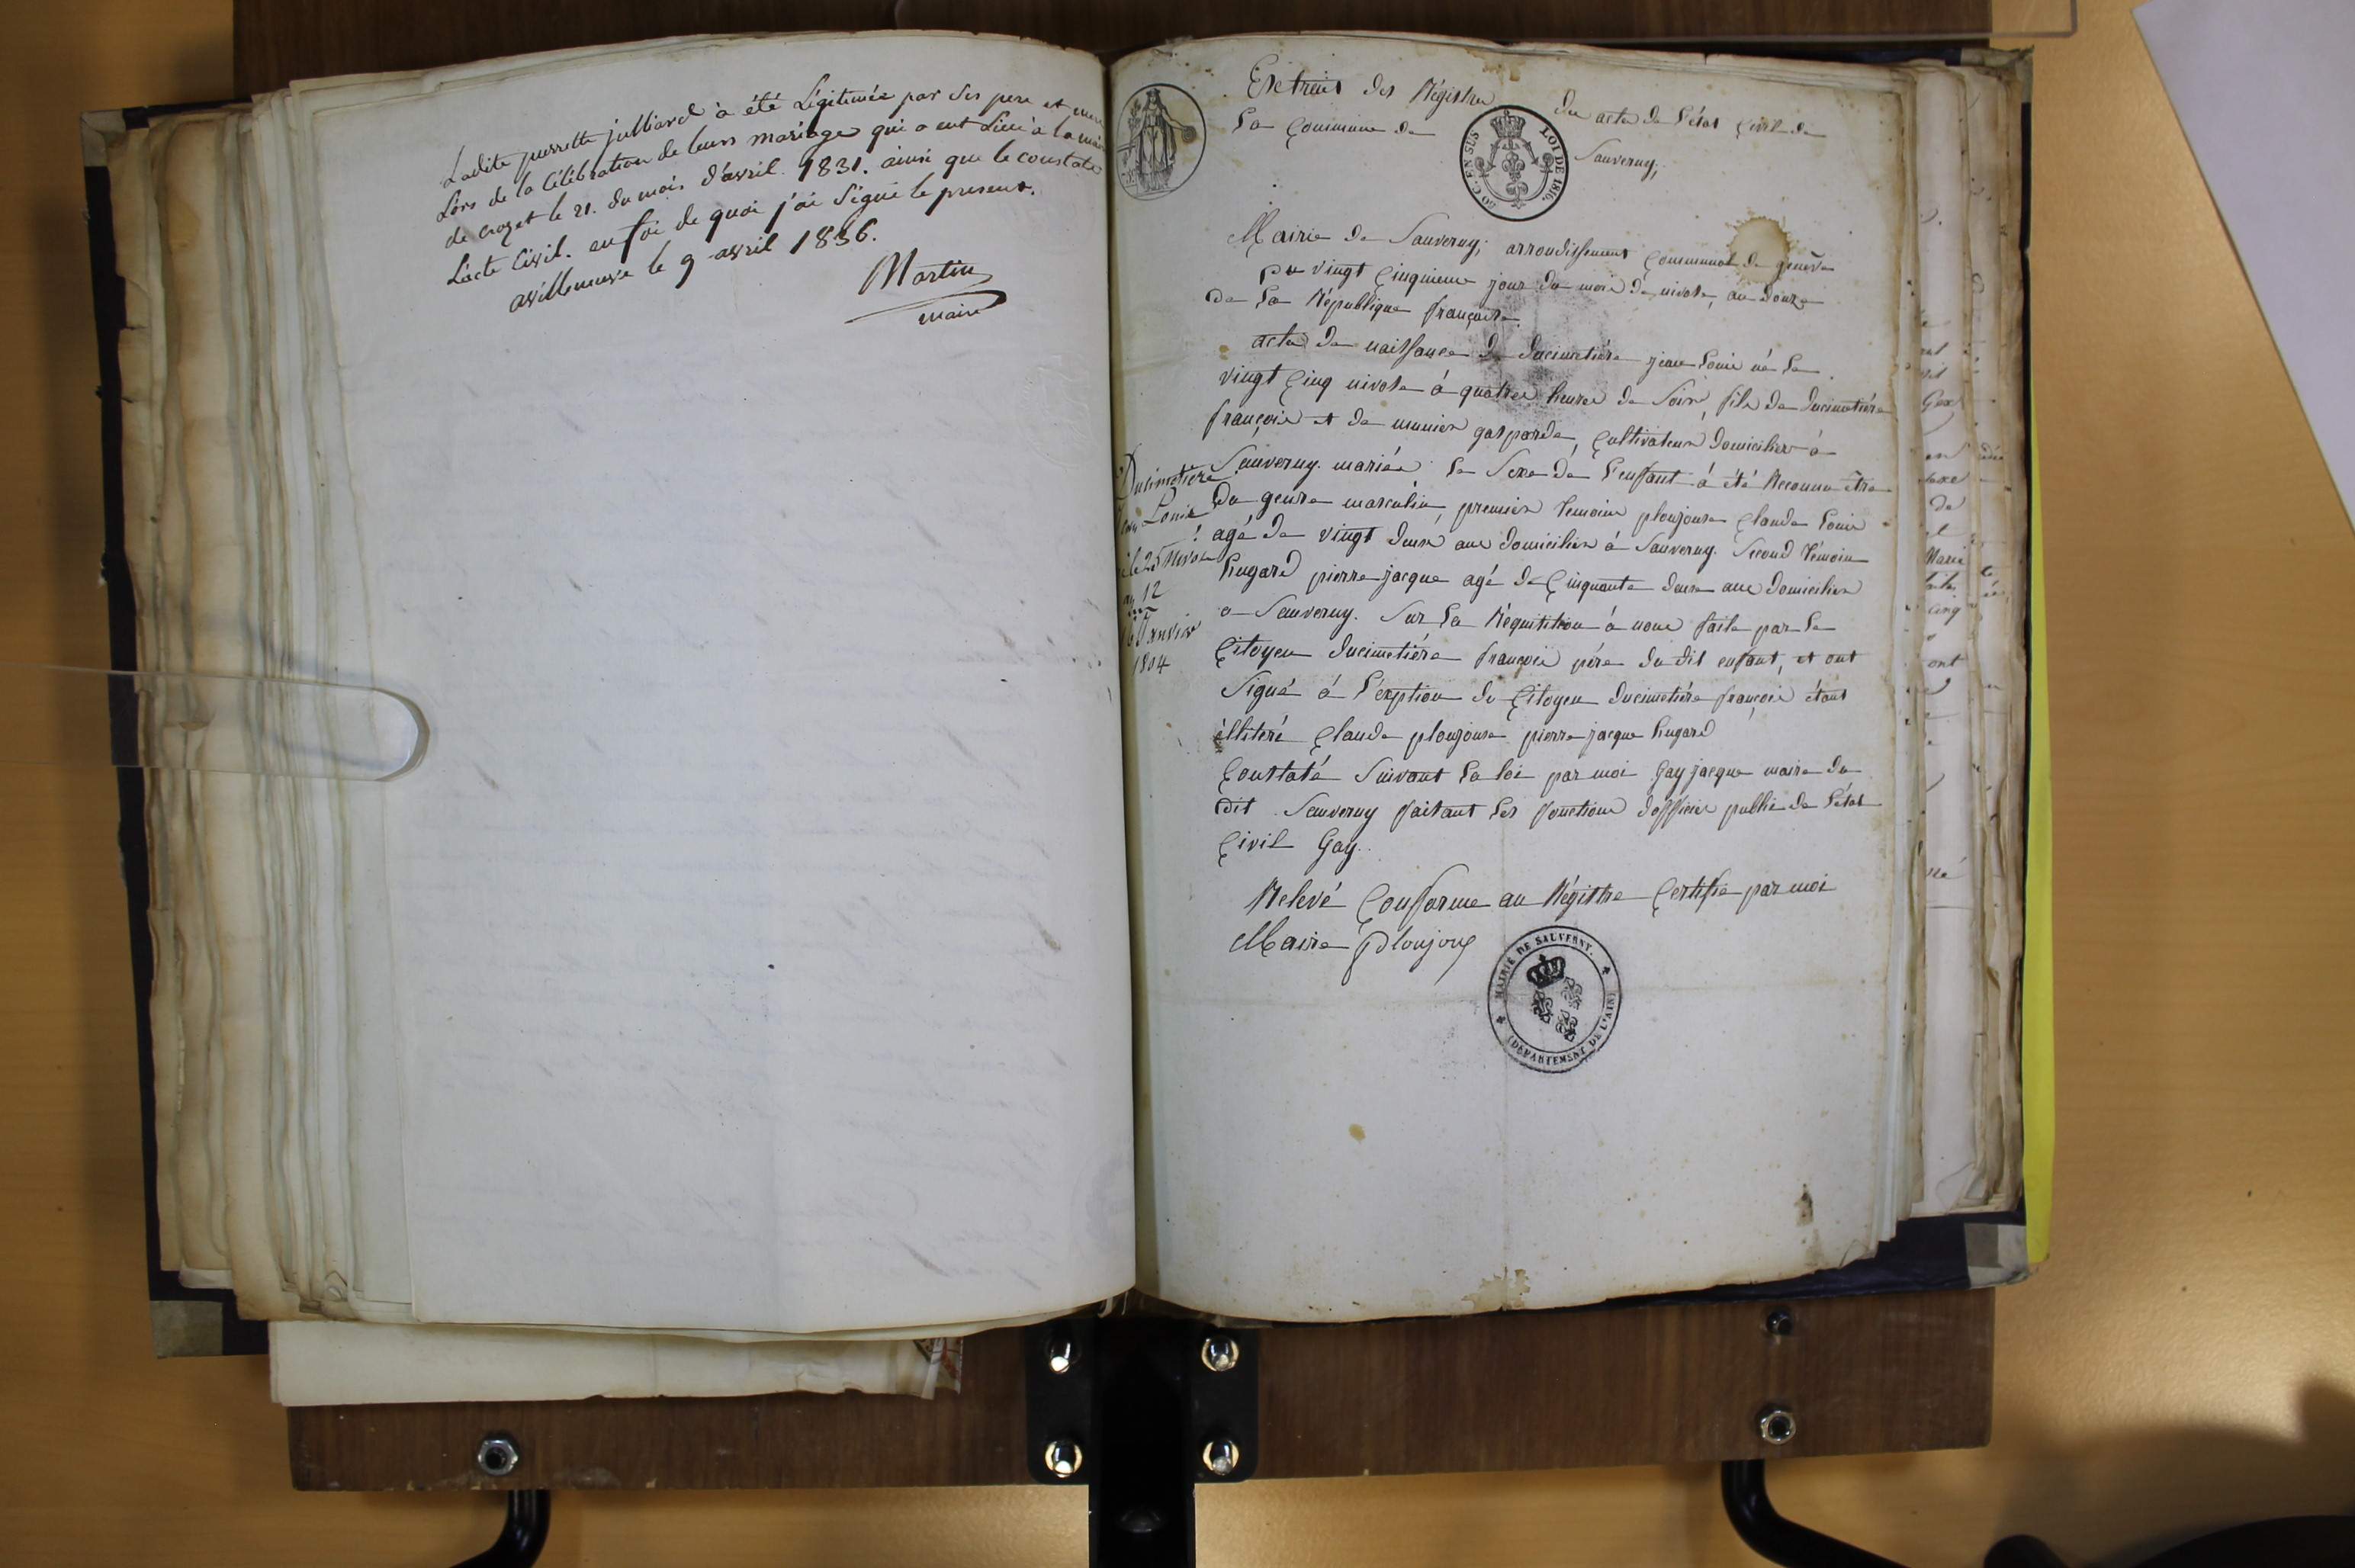 Ladite pierrette julliard à été Légitimée par ses pere et mere
Lors de la Célébration de leurs mariage qui a eut Lieu à la mairie
de crozet le 21. du mois d'avril 1831. ainsi que le constate
L'acte Civil. en foi de quoi j'ai Signé le present.
a villeneuve le 9 avril 1836.
Martin
maire
Extrait des Régistre des acte de l'état Civil de
La Commune de Sauverny,
50 C. EN SUS
LOI DE 1816.
Mairie de Sauverny, arrondissement Communal de genève
Du vingt Cinquieme jour du mois de nivose, an douze
de La République française.
acte de naissance de ducimetière jean Louis né le
vingt Cinq nivose à quatres heures de Soir, fils de ducimetière
françois et de munier gasparde, Cultivateurs domiciliés à
Sauverny. mariés Le Sexe de L'enfant à été Reconnu être
du genre masculin, premier témoins ploujoux Claude Louis
agé de vingt deux ans domicilier à Sauverny. Second témoin
hugard pierre jacque agé de Cinquante deux ans domicilier
a Sauverny. Sur La Réquisition à nous faite par le
Citoyen ducimetière françois père du dit enfant, et ont
Signé à L'exption du Citoyen ducimetière françois étant
illiteré Claude ploujoux pierre jacque hugard
Constaté Suivant La loi par moi Gay jacque maire du
dit Sauverny faisant Les fonctions d'officier public de L'état
Civil Gay.
Relevé Conforme au Régistre Certifié par moi
Maire Ploujoux
MAIRIE DE SAUVERNY.
(DÉPARTEMENT DE L'AIN)
Ducimetière
Jean Louis
le 25 Nivose
an 12
16 Janvier
1804